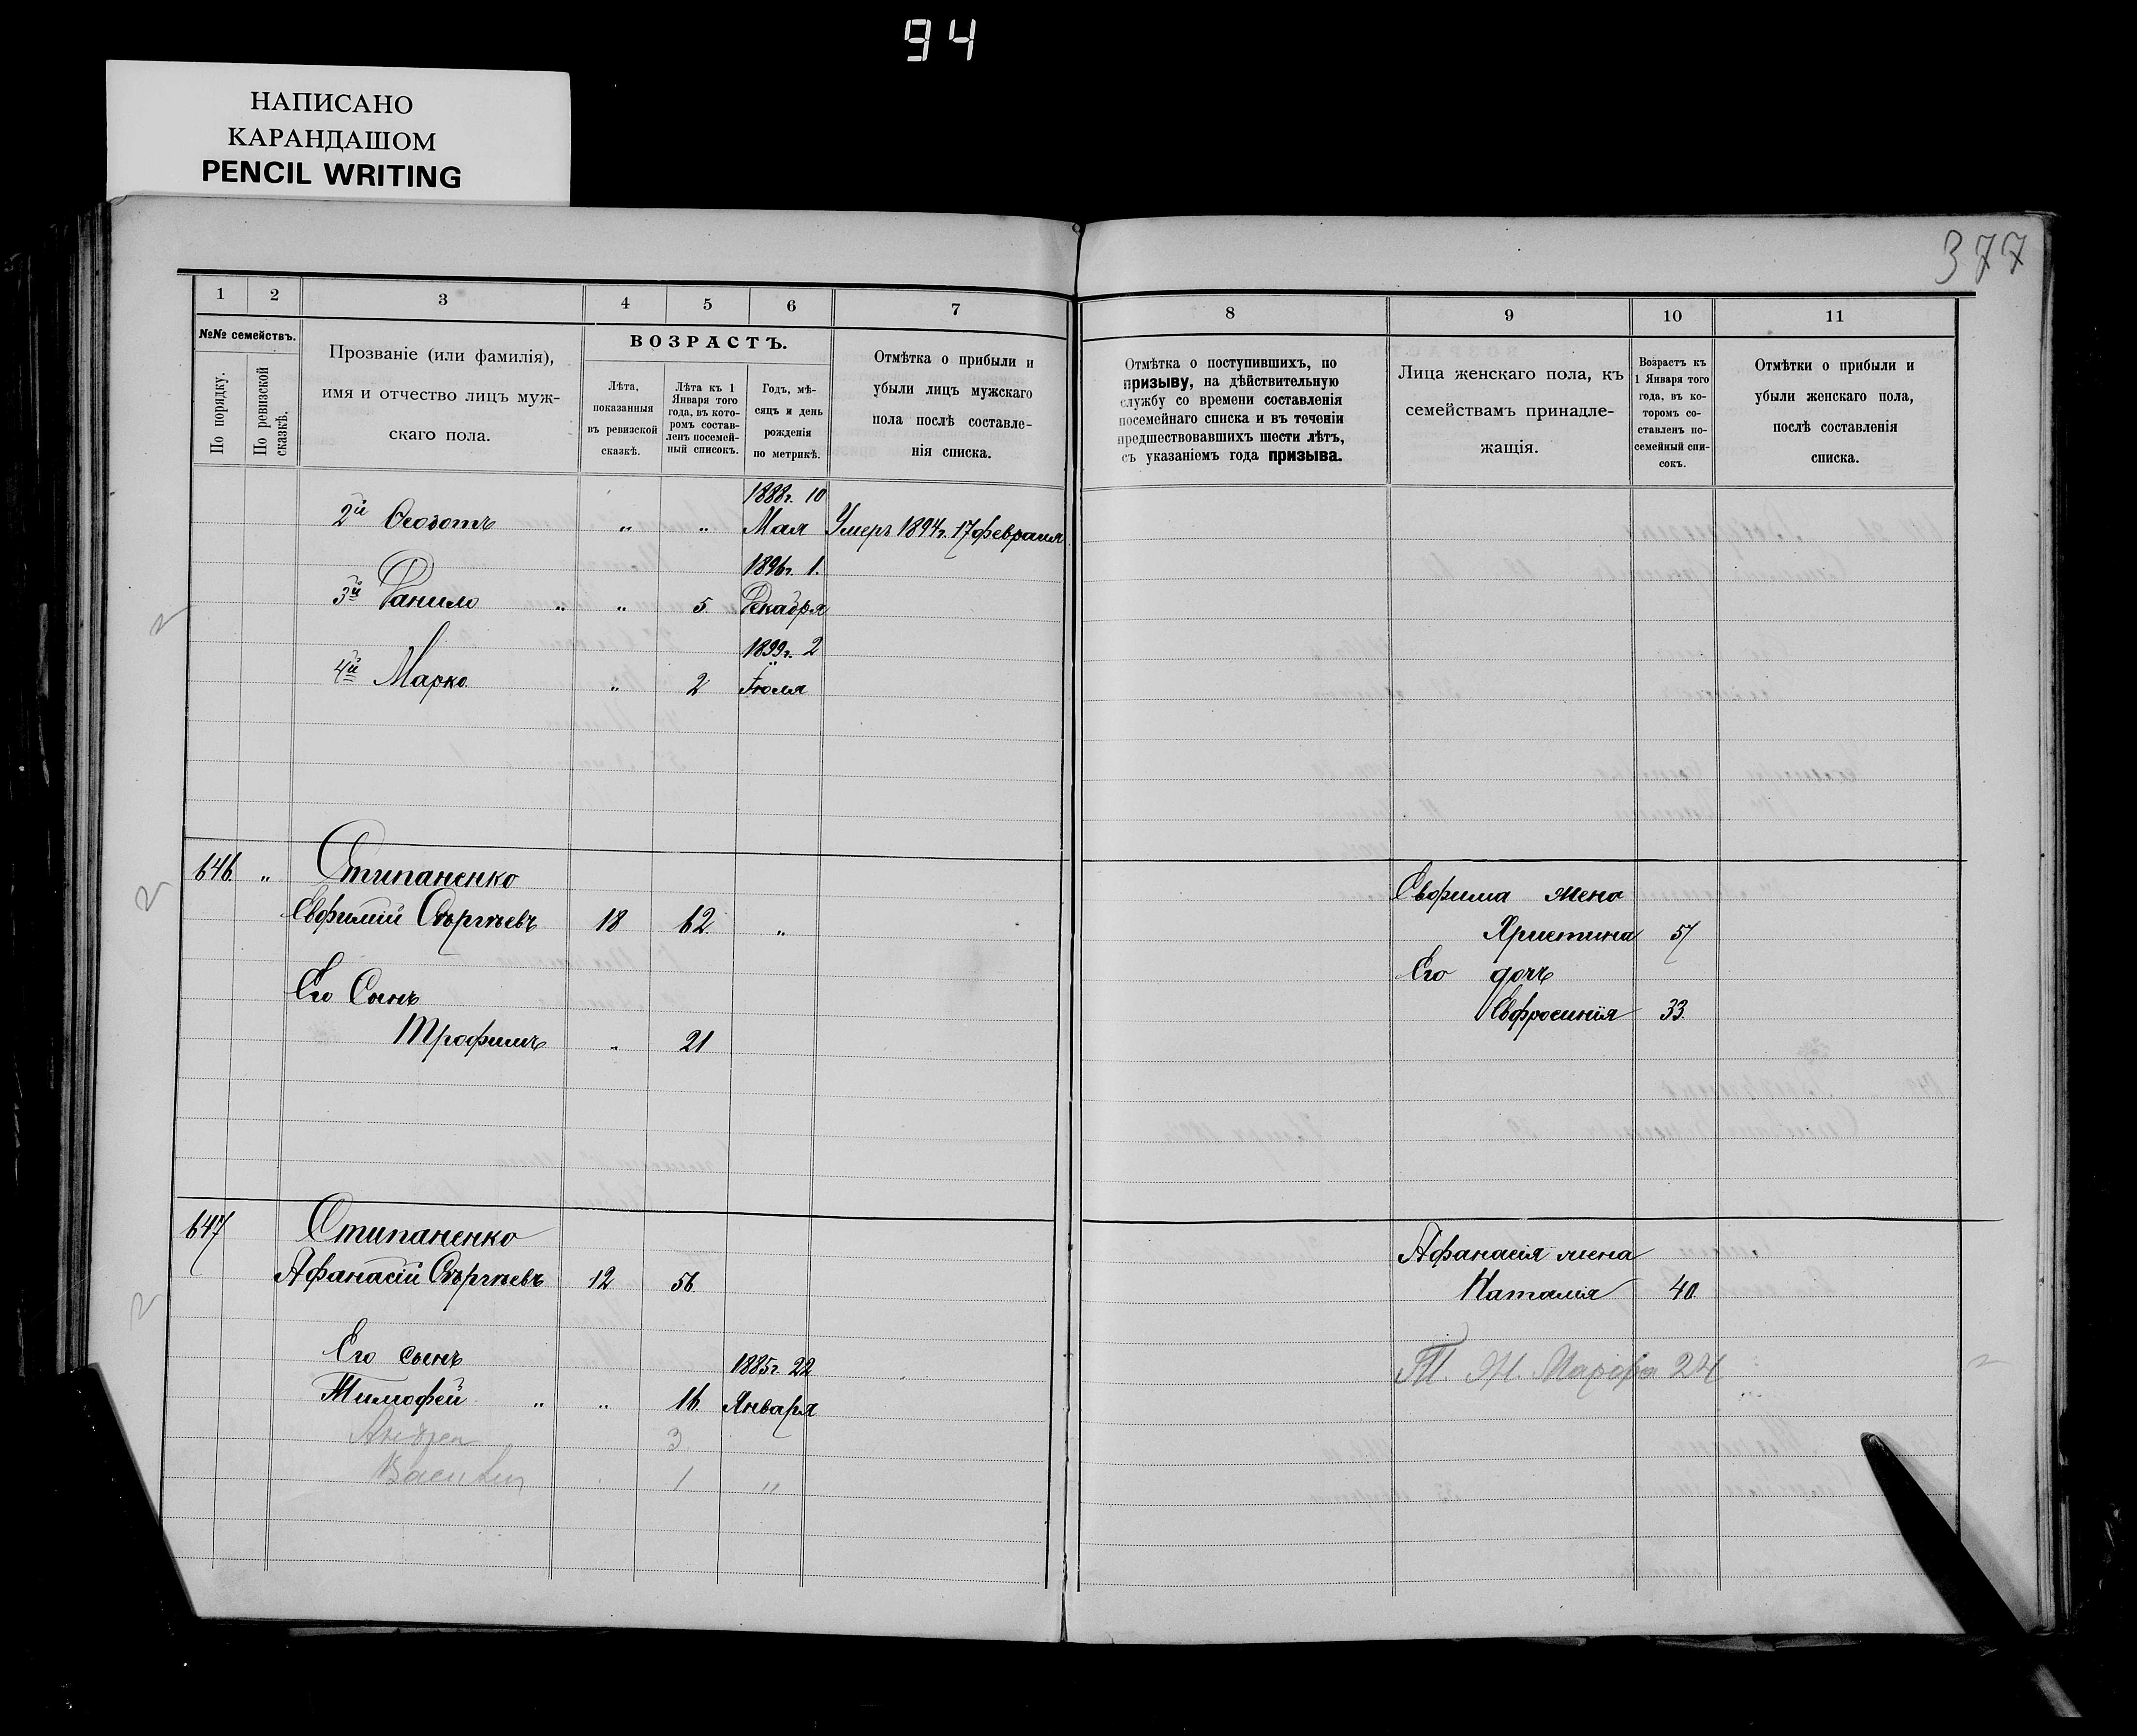 94
НАПИСАНО
КАРАНДАШОМ
PENCIL WRITING
377
1 2 3 4 5 6 7 8 9 10 11
№№ семействъ.
По порядку.
По ревизской сказкѣ.
Прозваніе (или фамилія),
имя и отчество лицъ муж-
скаго пола.
ВОЗРАСТЪ.
Лѣта,
показанныя
въ ревизской
сказкѣ.
Лѣта къ 1
Января того
года, въ кото-
ромъ состав-
ленъ посемей-
ный списокъ.
Годъ, мѣ-
сяцъ и день
рожденія
по метрикѣ.
Отмѣтка о прибыли и
убыли лицъ мужскаго
пола послѣ составле-
нія списка.
Отмѣтка о поступившихъ, по
призыву, на дѣйствительную
службу со времени составленія
посемейнаго списка и въ теченіи
предшествовавшихъ шести лѣтъ,
съ указаніемъ года призыва.
Лица женскаго пола, къ
семействамъ принадле-
жащія.
Возрастъ къ
1 Января того
года, въ ко-
торомъ со-
ставленъ по-
семейный спи-
сокъ.
Отмѣтки о прибыли и
убыли женскаго пола,
послѣ составленія
списка.
1888г. 10
2й Ѳеодотъ " " Мая Умеръ 1894г. 17 февраля
1896г. 1.
3й Данило " " 5. Декабря
1899г. 2
4й Марко " 2 Іюля
646. " Стипаненко
Евфима жена
Евфимій Сѣргѣевъ 18 62. "
Христина 57
Его дочь
Его Сынъ
Евфросинія 33.
Трофимъ " 21
647 Стипаненко
Афанасія жена
Афанасій Сѣргѣевъ 12 56.
Наталія 40.
Его сынъ 1885г. 22
Т. Ж. Марфа 24
Тимофей " " 16. Января
Андрей 3
Василий 1 "